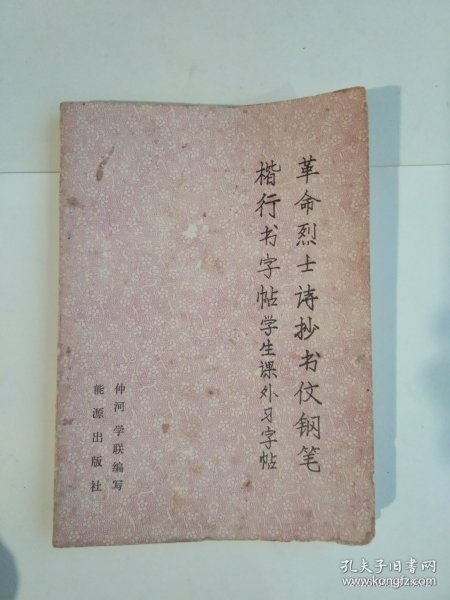 革命烈士诗抄书仗钢笔
楷行书字帖学生课外习字帖
仲河 学联编写
能源出版社
孔夫子旧书网
www.kongfz.com